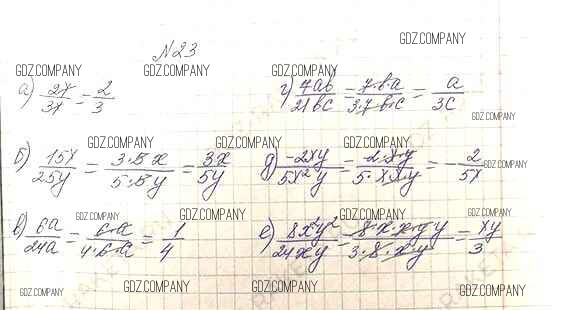 №23
GDZ.COMPANY
GDZ.COMPANY GDZ.COMPANY GDZ.COMPANY
а) 2x/3x = 2/3
г) 7ab/21bc = 7·b·a/3·7·b·c = a/3c
GDZ.COMPANY
GDZ.COMPANY GDZ.COMPANY
б) 15x/25y = 3·5·x/5·5·y = 3x/5y
д) -2xy/5x²y = -2·x·y/5·x·x·y = -2/5x
GDZ.COMPANY
GDZ.COMPANY GDZ.COMPANY GDZ.COMPANY
в) 6a/24a = 6·a/4·6·a = 1/4
е) 8x²y²/24xy = 8·x·x·y·y/3·8·x·y = xy/3
GDZ.COMPANY GDZ.COMPANY GDZ.COMPANY GDZ.COMPANY